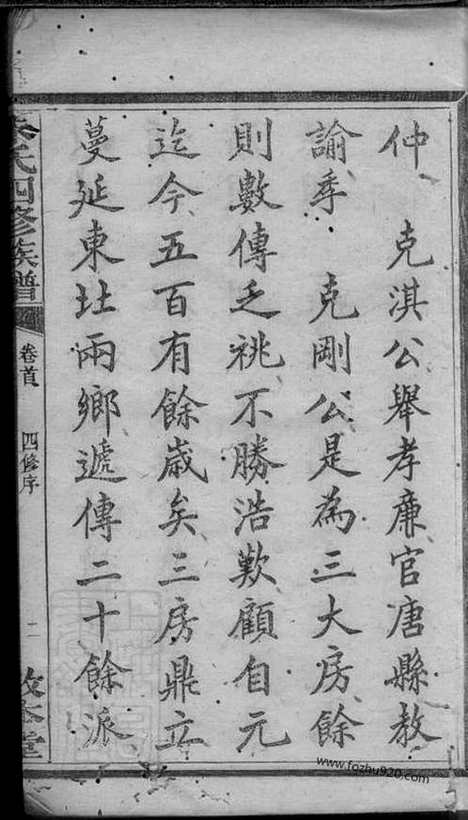 仲　克淇公舉孝廉官唐縣教
諭季　克剛公是為三大房餘
則數傳乏祧不勝浩歎顧自元
迄今五百有餘歲矣三房鼎立
蔓延東北兩鄉遞傳二十餘派
氏四修族譜
卷首　四修序
二
堂
www.fozhu920.com